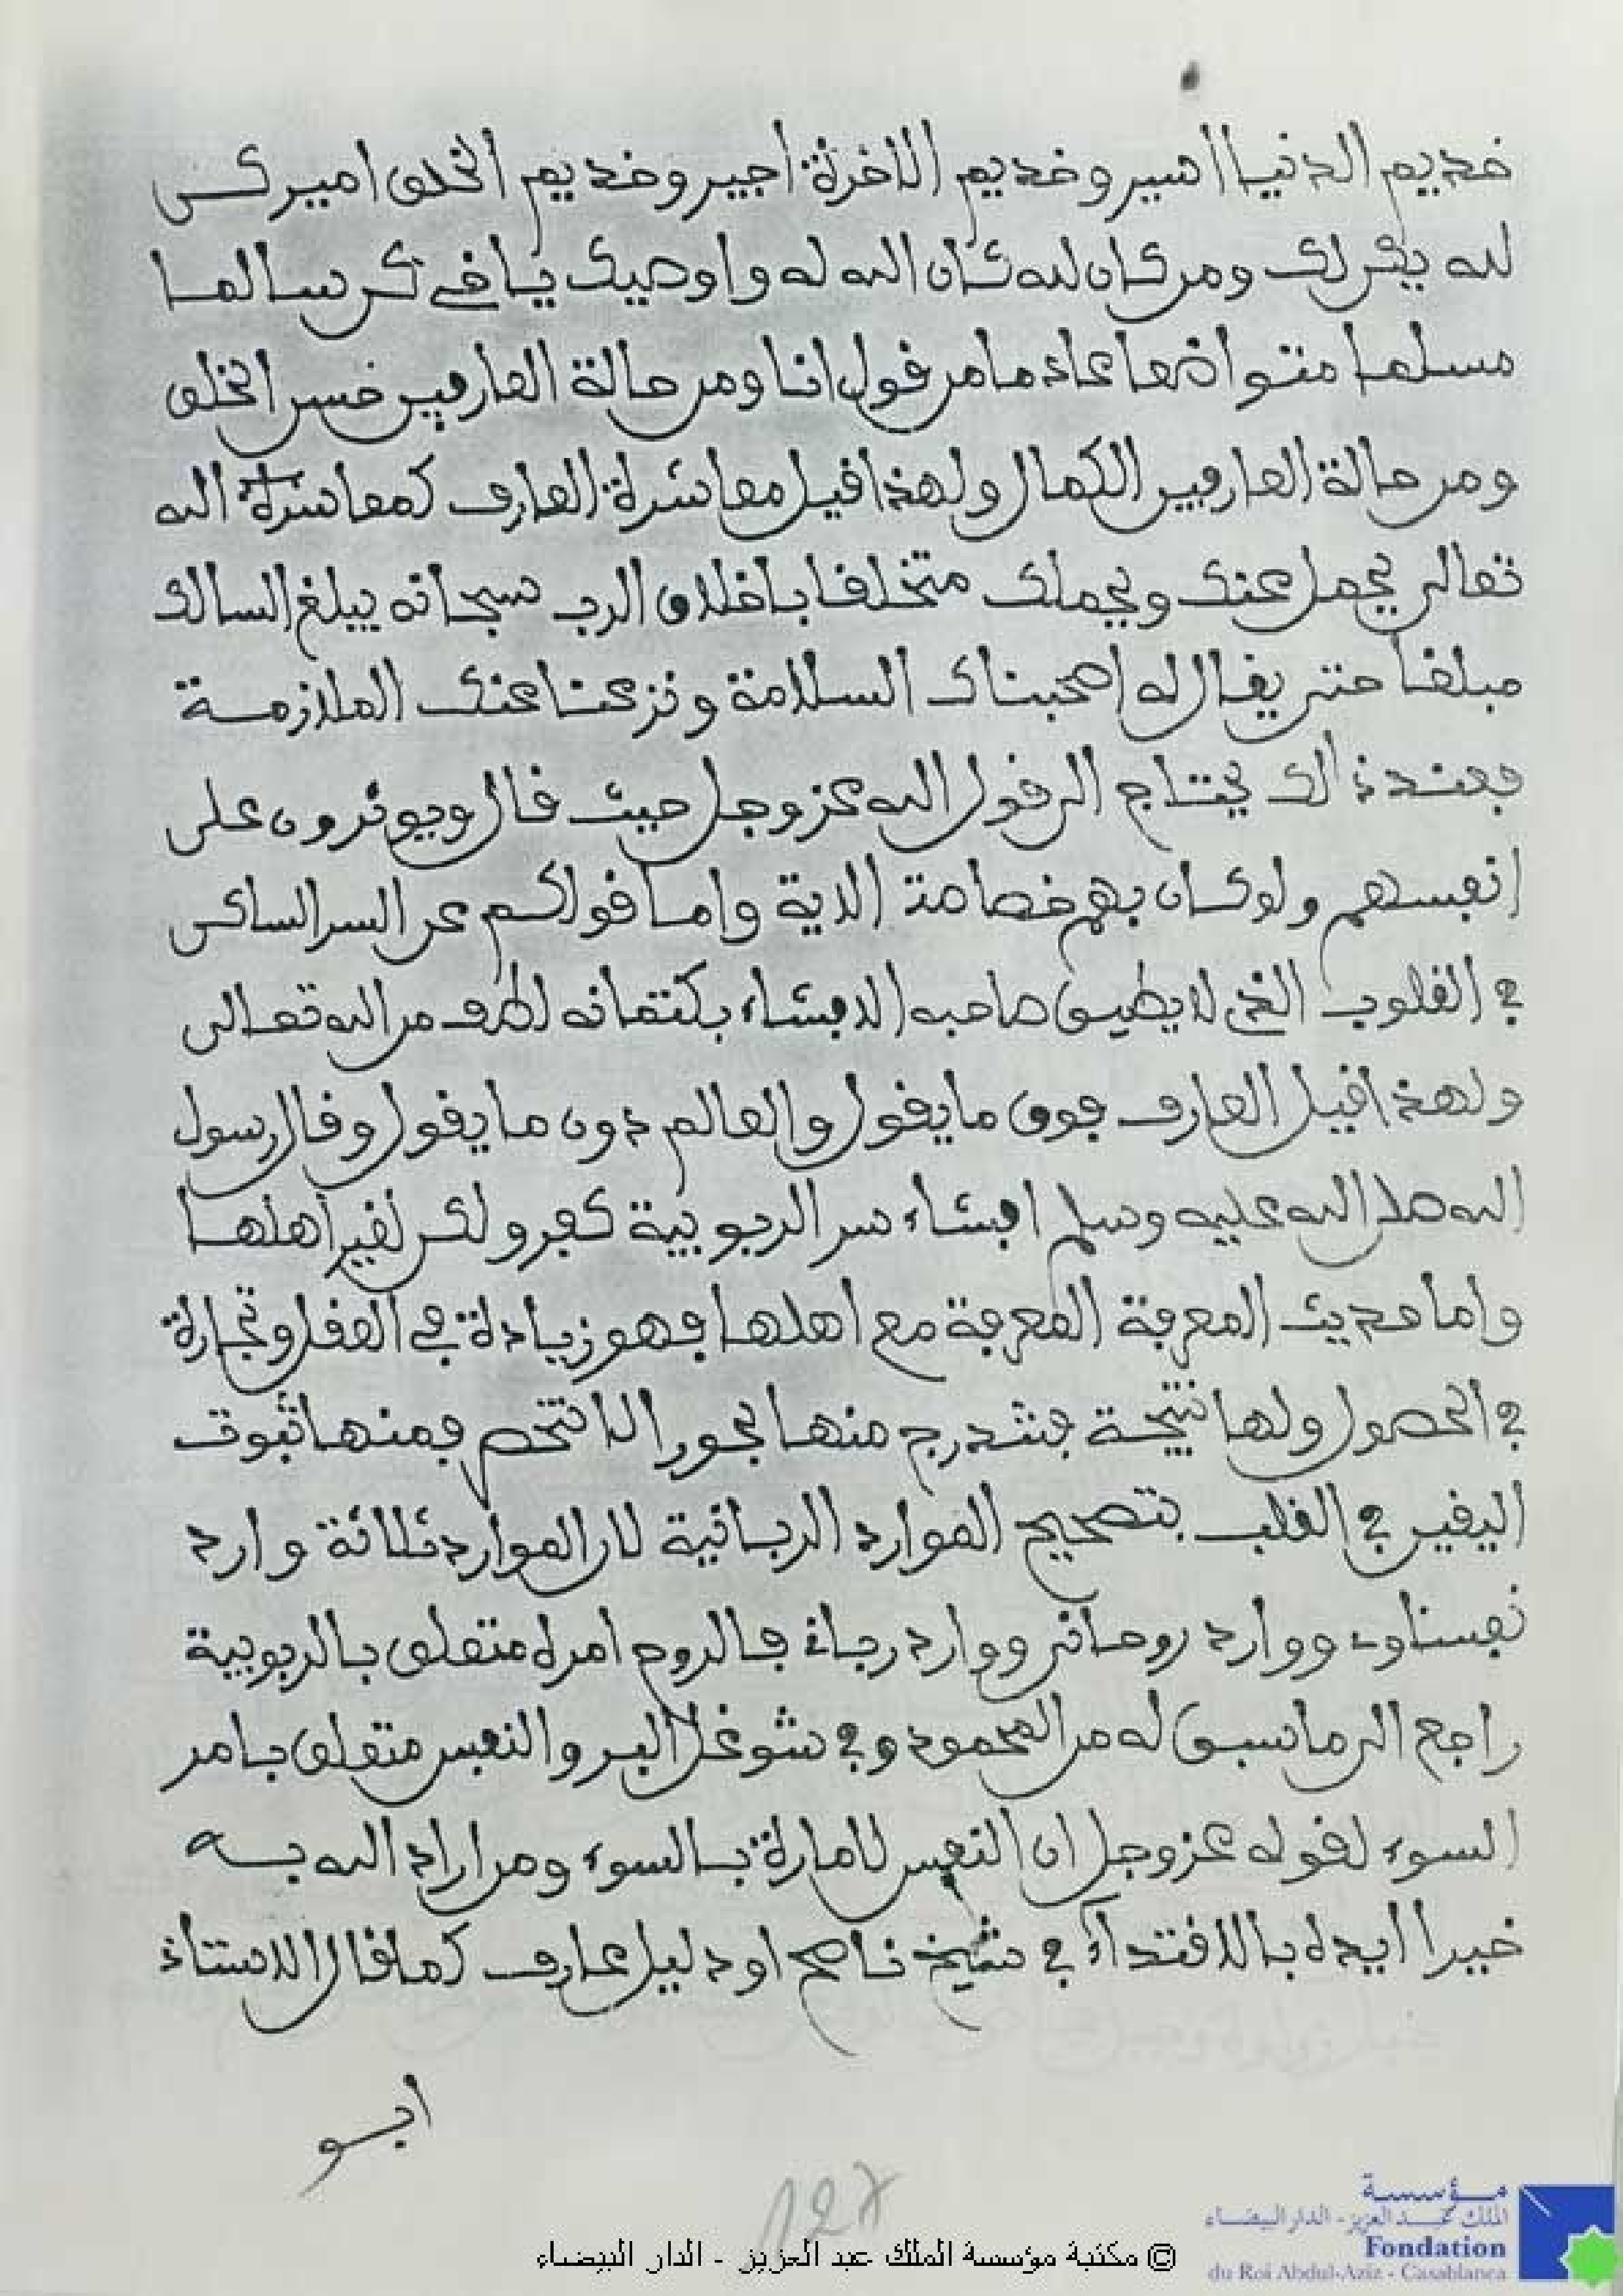 خديم الدنيا اسير وخديم الاخرة اجير وخديم الخلق امير كن
لله يكن لك ومن كان لله كان الله له واوصيك يا في كن سالما
مسلما متواضعا عادما من قول انا ومن حالة العارفين خسر الخلق
ومن حالة العارفين الكمال ولهذا قيل معاشرة العارف كمعاشرة الله
تعالى يحمل عنك ويحملك متخلقا باخلاق الرب سبحانه يبلغ السالك
مبلغا حتى يقال له اصحبناك السلامة ونزعنا عنك الملازمة
فعند ذالك يحتاج الى قول الله عز وجل حيث قال ويوثرون على
انفسهم ولو كان بهم خصاصة الاية واما قولكم عن السر الساكن
في القلوب الذي لا يطيق صاحبه الافشاء بكتمانه لطف من الله تعالى
ولهذا قيل العارف فوق ما يقول والعالم دون ما يقول وقال رسول
الله صلى الله عليه وسلم افشاء سر الربوبية كفر ولكن لغير اهلها
واما حديث المعرفة المعرفة مع اهلها فهو زيادة في العقل وتجارة
في الحصول ولها نتيجة فتندرج منها بحور لا تنتحصر فمنها ثبوت
اليقين في القلب بتصحيح الموارد الربانية لان الموارد ثلاثة وارد
نفساوي ووارد روحاني ووارد رباني فالروح امره متعلق بالربوبية
راجع الى ما سبق له من المحمود وفي شوغل البر والنفس متعلق بامر
السوء لقوله عز وجل ان النفس لامارة بالسوء ومن اراد الله به
خيرا ايده بالاقتداء في شيخ ناصح او دليل عارف كما قال الاستاذ
ابو
127
© مكتبة مؤسسة الملك عبد العزيز - الدار البيضاء
مؤسسة
الملك عبد العزيز - الدار البيضاء
Fondation
du Roi Abdul-Aziz - Casablanca